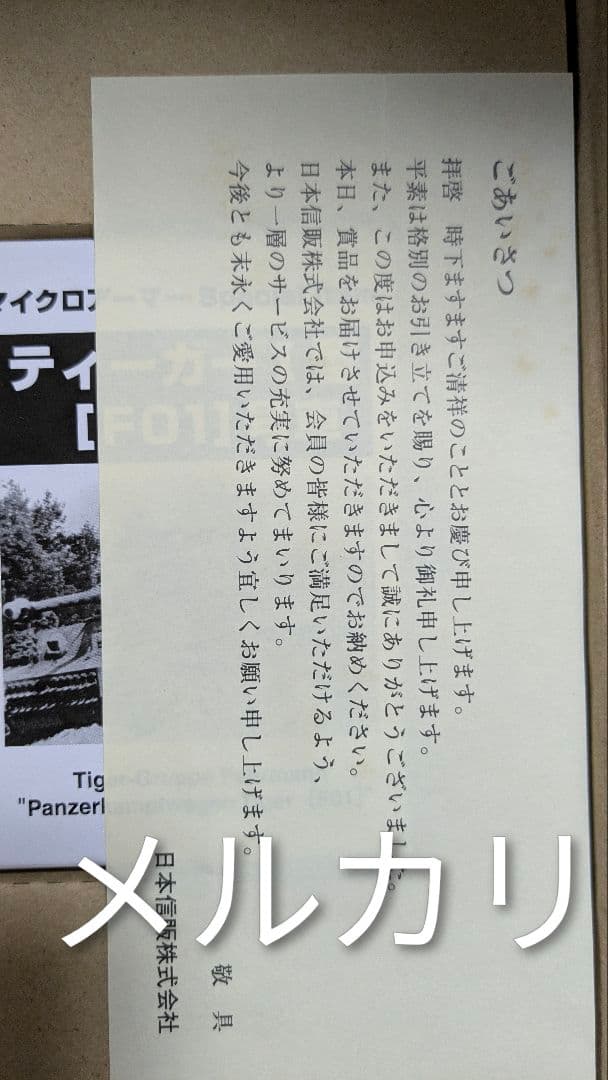 ごあいさつ
拝啓　時下ますますご清祥のこととお慶び申し上げます。
平素は格別のお引き立てを賜り、心より御礼申し上げます。
また、この度はお申込みをいただきまして誠にありがとうございました。
本日、賞品をお届けさせていただきますのでお納めください。
日本信販株式会社では、会員の皆様にご満足いただけるよう、
より一層のサービスの充実に努めてまいります。
今後とも末永くご愛用いただきますよう宜しくお願い申し上げます。
敬　具
日本信販株式会社
マイクロアーマー
ティーガー
[F01]
Tiger-Gruppe
"Panzerkampfwagen Tiger [F01]"
メルカリ